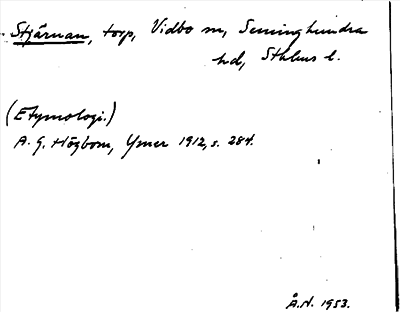 Stjärnan, torp, Vidbo sn, Seminghundra
hd, Sthlms l.
(Etymologi.)
A. G. Högbom, Ymer 1912, s. 284.
Å.N. 1953.